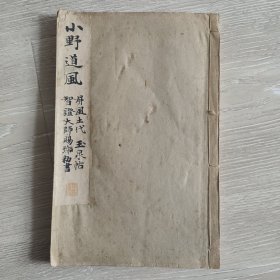 小野道風
屏風土代 玉泉帖
智證大師賜號勅書